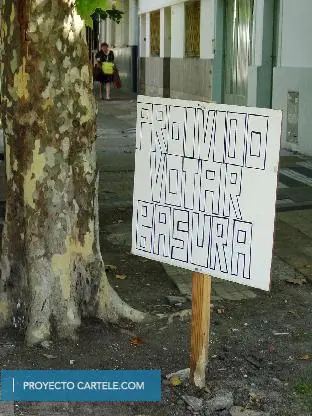 PROIVIDO
VOTAR
BASURA
PROYECTO CARTELE.COM